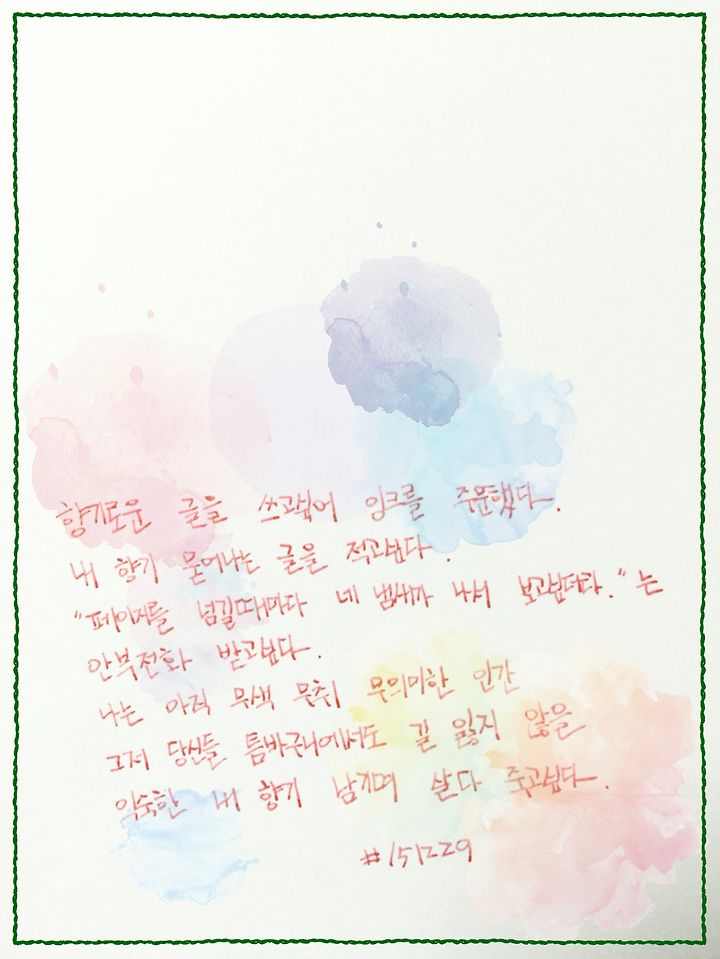 향기로운 글을 쓰고싶어 잉크를 주문했다.
내 향기 묻어나는 글을 적고싶다.
"페이지를 넘길때마다 네 냄새가 나서 보고싶더라." 는
안부전화 받고싶다.
나는 아직 무색 무취 무의미한 인간
그저 당신들 틈바구니에서도 길 잃지 않을
익숙한 내 향기 남기며 살다 죽고싶다.
#151229